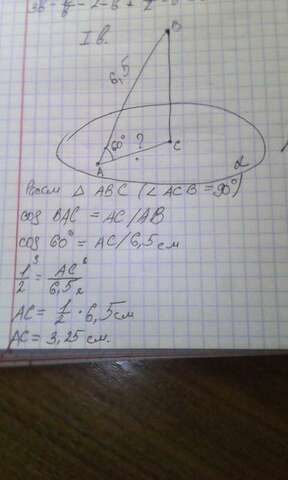 I в.
B
6,5
60°
?
A
C
α
Рассм △ ABC (∠ ACB = 90°)
cos BAC = AC/AB
cos 60° = AC/6,5 см
1/2 = AC/6,5
AC = 1/2 · 6,5 см
AC = 3,25 см.